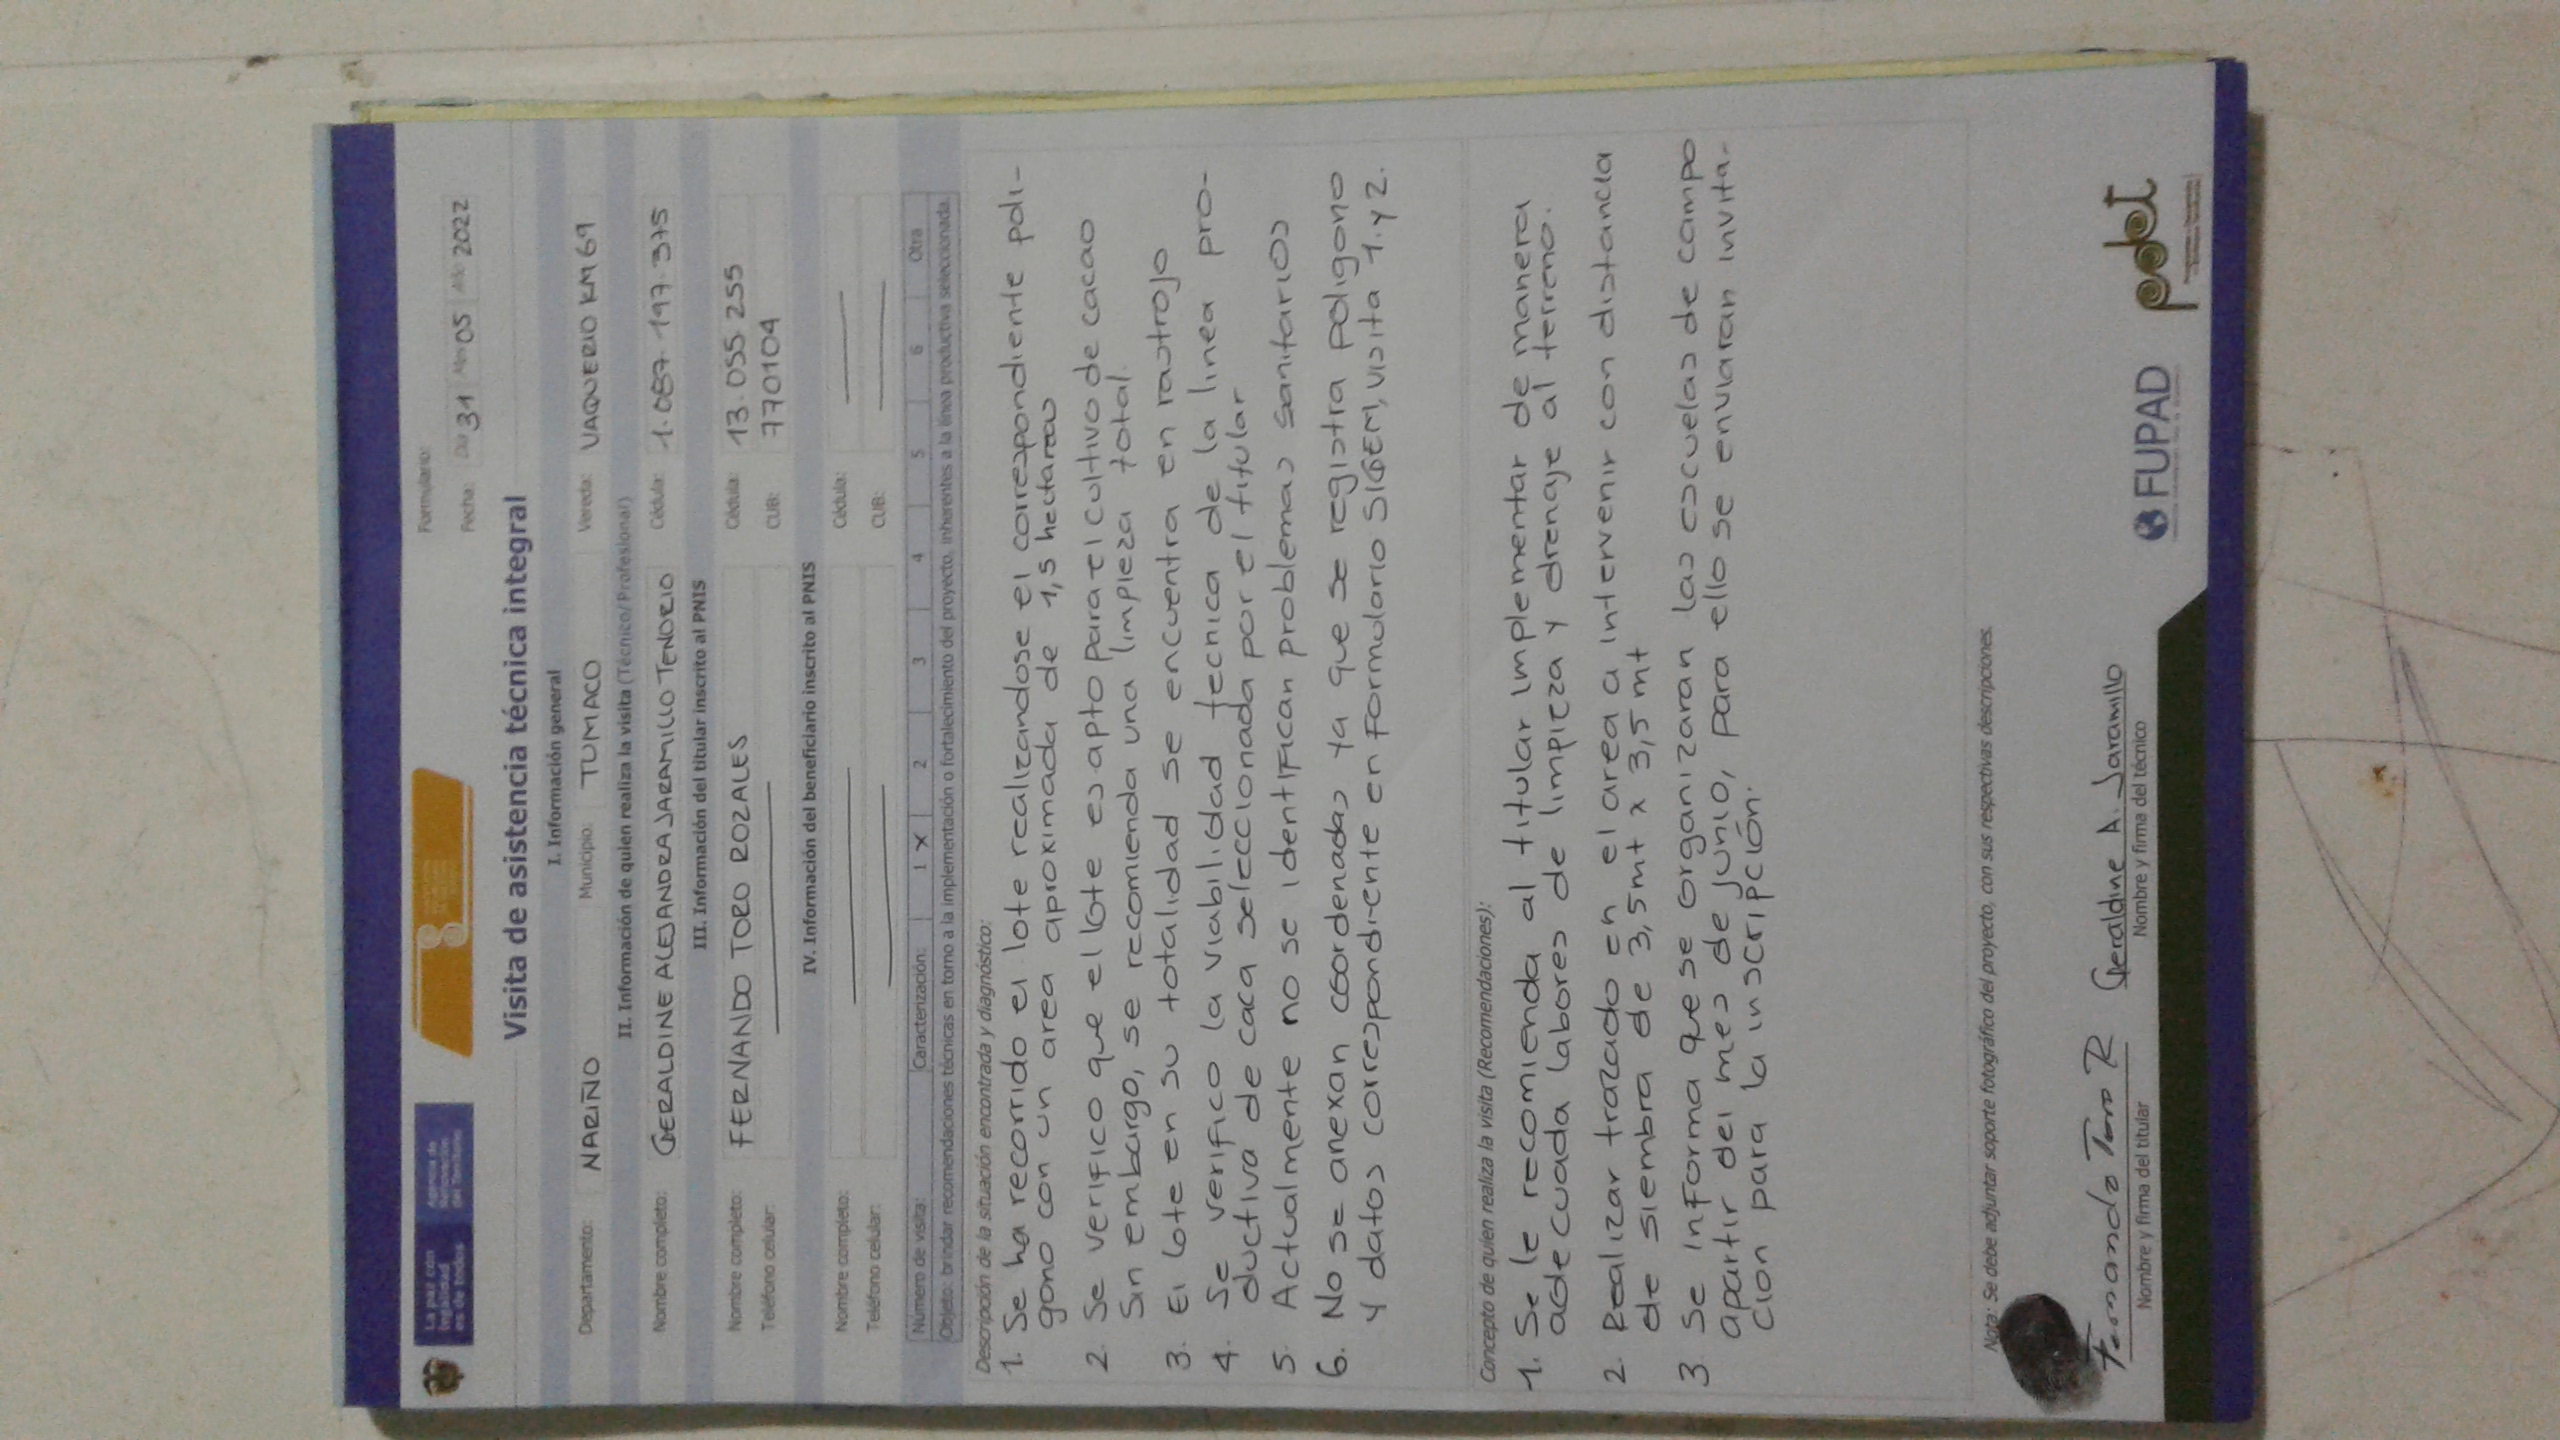 La paz con
legalidad
es de todos
Agencia de
Renovación
del Territorio
Formulario:
Fecha: Día 31 Mes 05 Año 2022
Visita de asistencia técnica integral
I. Información general
Departamento: NARIÑO Municipio: TUMACO Vereda: VAQUERIO KM 69
II. Información de quien realiza la visita (Técnico/Profesional)
Nombre completo: GERALDINE ALEJANDRA JARAMILLO TENORIO Cédula: 1.087.197.375
III. Información del titular inscrito al PNIS
Nombre completo: FERNANDO TORO ROZALES Cédula: 13.055.255
Teléfono celular: CUB: 770104
IV. Información del beneficiario inscrito al PNIS
Nombre completo: Cédula:
Teléfono celular: CUB:
Número de visita: Caracterización: 1 X 2 3 4 5 6 Otra
Objeto: brindar recomendaciones técnicas en torno a la implementación o fortalecimiento del proyecto, inherentes a la línea productiva seleccionada.
Descripción de la situación encontrada y diagnóstico:
1. Se ha recorrido el lote realizandose el correspondiente poli-
gono con un area aproximada de 1,5 hectareas
2. Se verifico que el lote es apto para el cultivo de cacao
Sin embargo, se recomienda una limpieza total.
3. El lote en su totalidad se encuentra en rastrojo
4. Se verifico la viabilidad tecnica de la linea pro-
ductiva de caca seleccionada por el titular
5. Actualmente no se identifican problemas sanitarios
6. No se anexan coordenadas ya que se registra poligono
y datos correspondiente en formulario SIGEM, visita 1 y 2.
Concepto de quien realiza la visita (Recomendaciones):
1. Se le recomienda al titular implementar de manera
adecuada labores de limpieza y drenaje al terreno.
2. Realizar trazado en el area a intervenir con distancia
de siembra de 3,5 mt x 3,5 mt
3. Se informa que se organizaran las escuelas de campo
apartir del mes de junio, para ello se enviaran invita-
cion para la inscripción.
Nota: Se debe adjuntar soporte fotográfico del proyecto, con sus respectivas descripciones.
Fernando Toro R
Geraldine A. Jaramillo
Nombre y firma del titular
Nombre y firma del técnico
FUPAD
pdet